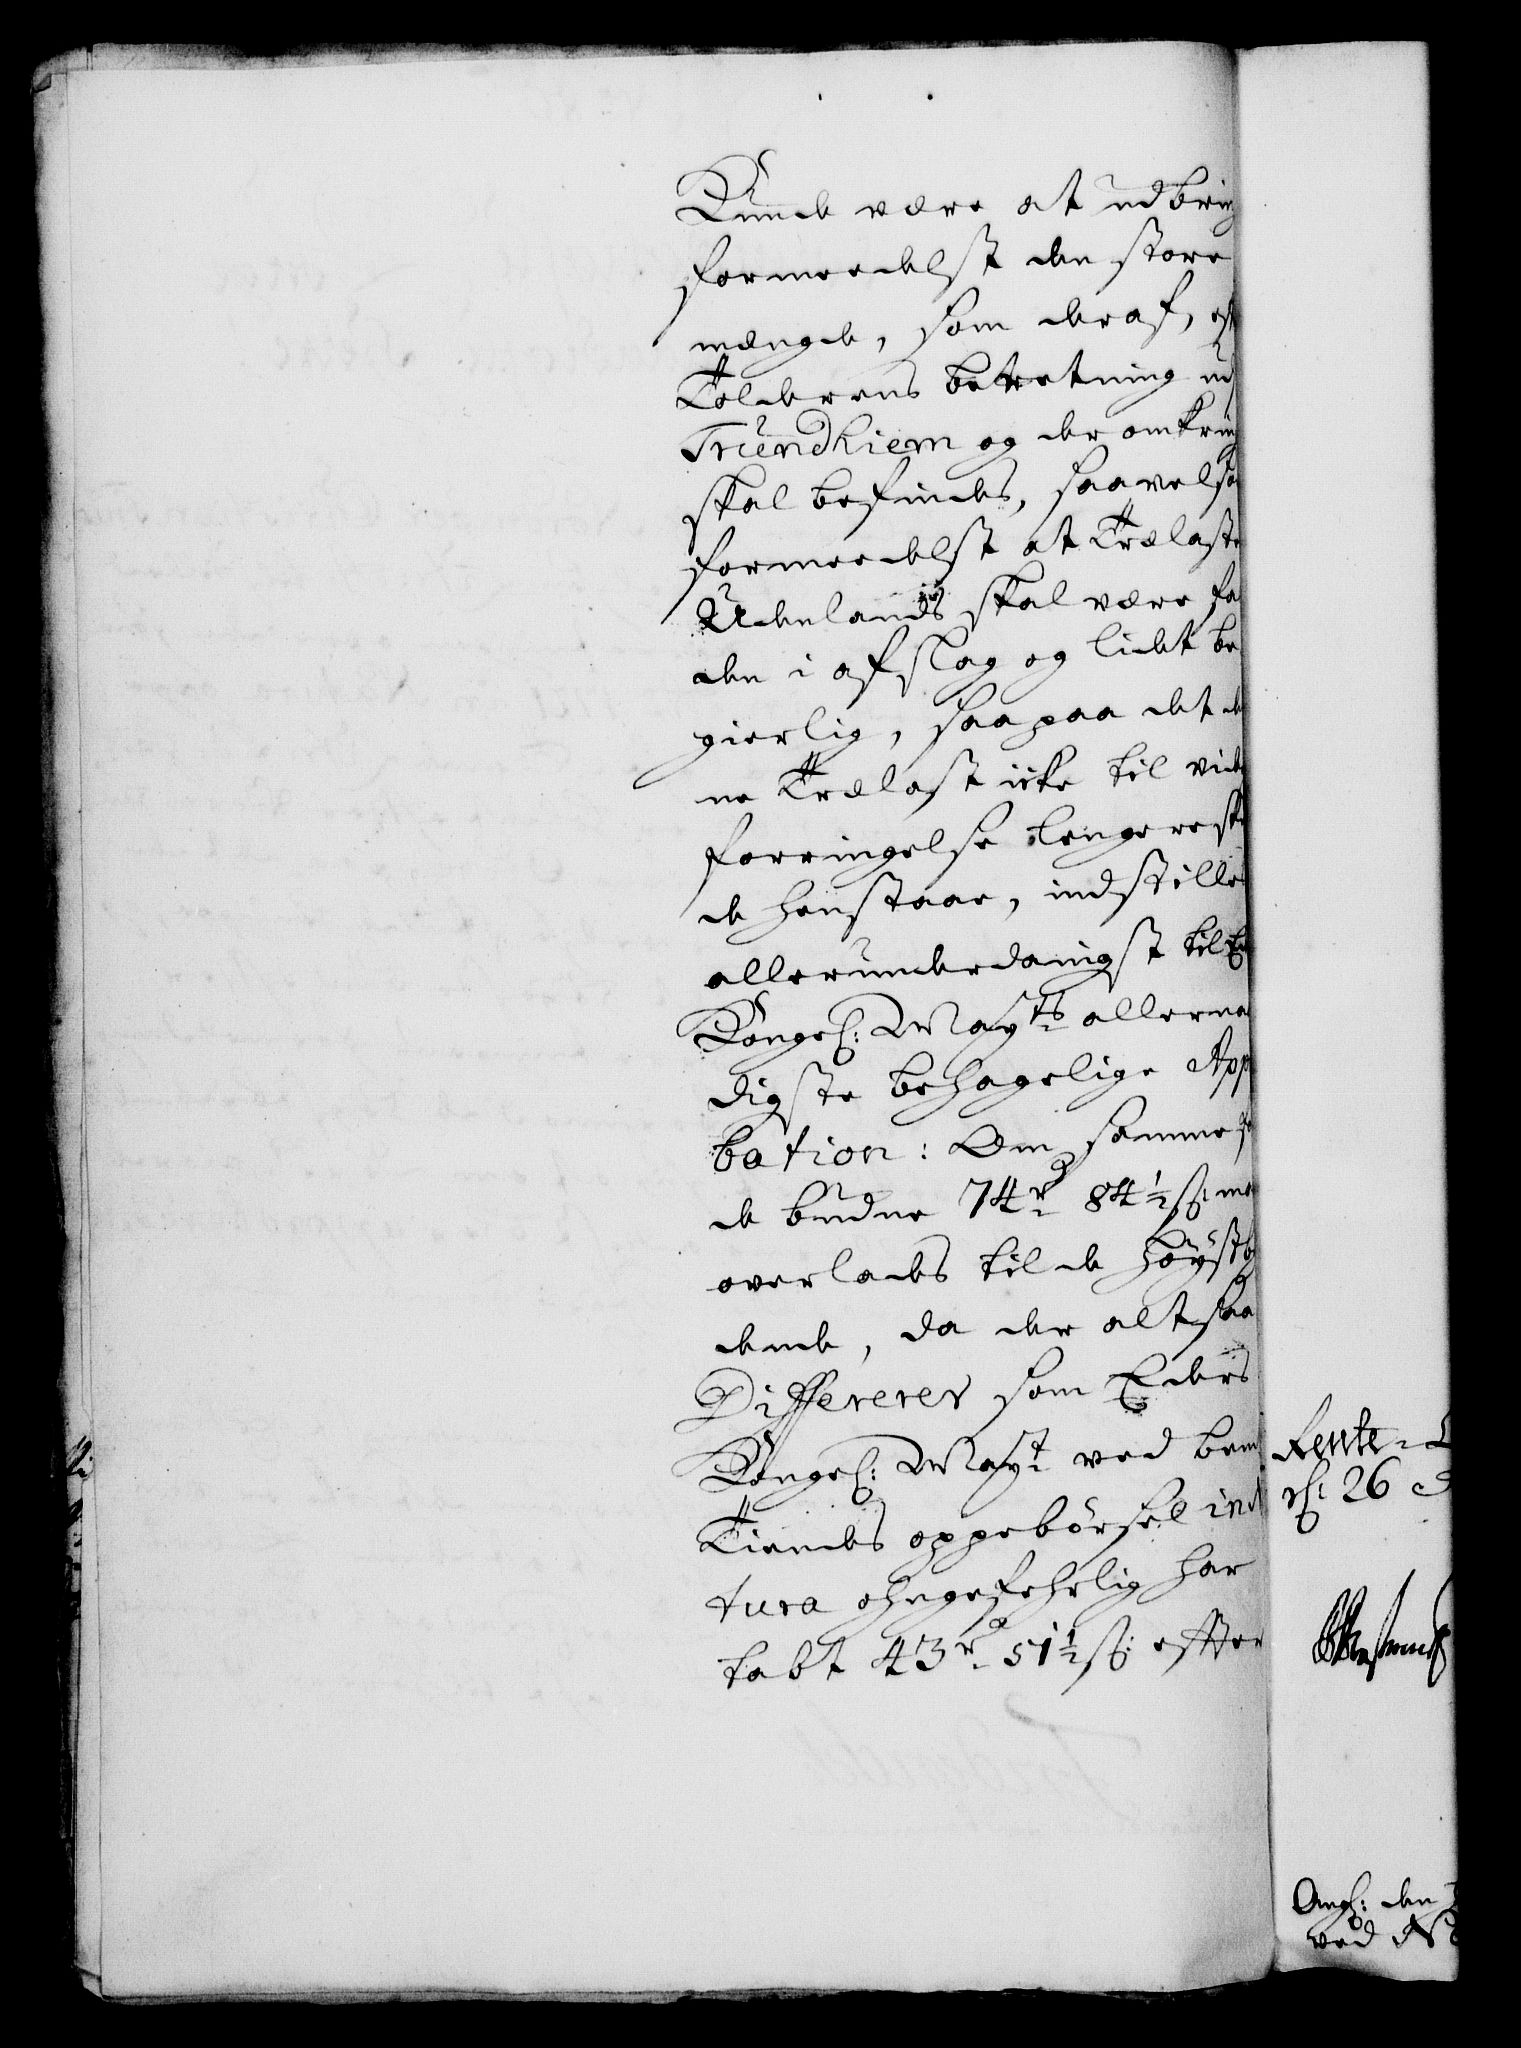 Kunde være at udbrin
formeedelst den store
mængde, som deraf, eft
Tolderens beretning ud
Trundhiem og der omkring
skal befindes, saavelso
formeedelst at Trælaste
Udenlands skal være fa
den i afslag og lidt be
gierlig, saa paa det de
ne Trælast icke til vid
forringelse lengere sk
de henstaae, indstilles
allerunderdanigst til E
Kongel: Mayts allerna
digste behagelige App
bation: Om samme f
de budne 74 rd 84½ s: m
overlades til de høystb
dende, da der altsaa
Differerer som Eders
Kongel: Mayt ved bem
Tiendes oppebørsel in
tura ohngefehrlig har
tabt 43 rd 51½ s: effter
Rente-
d: 26
Angl: den
ved N